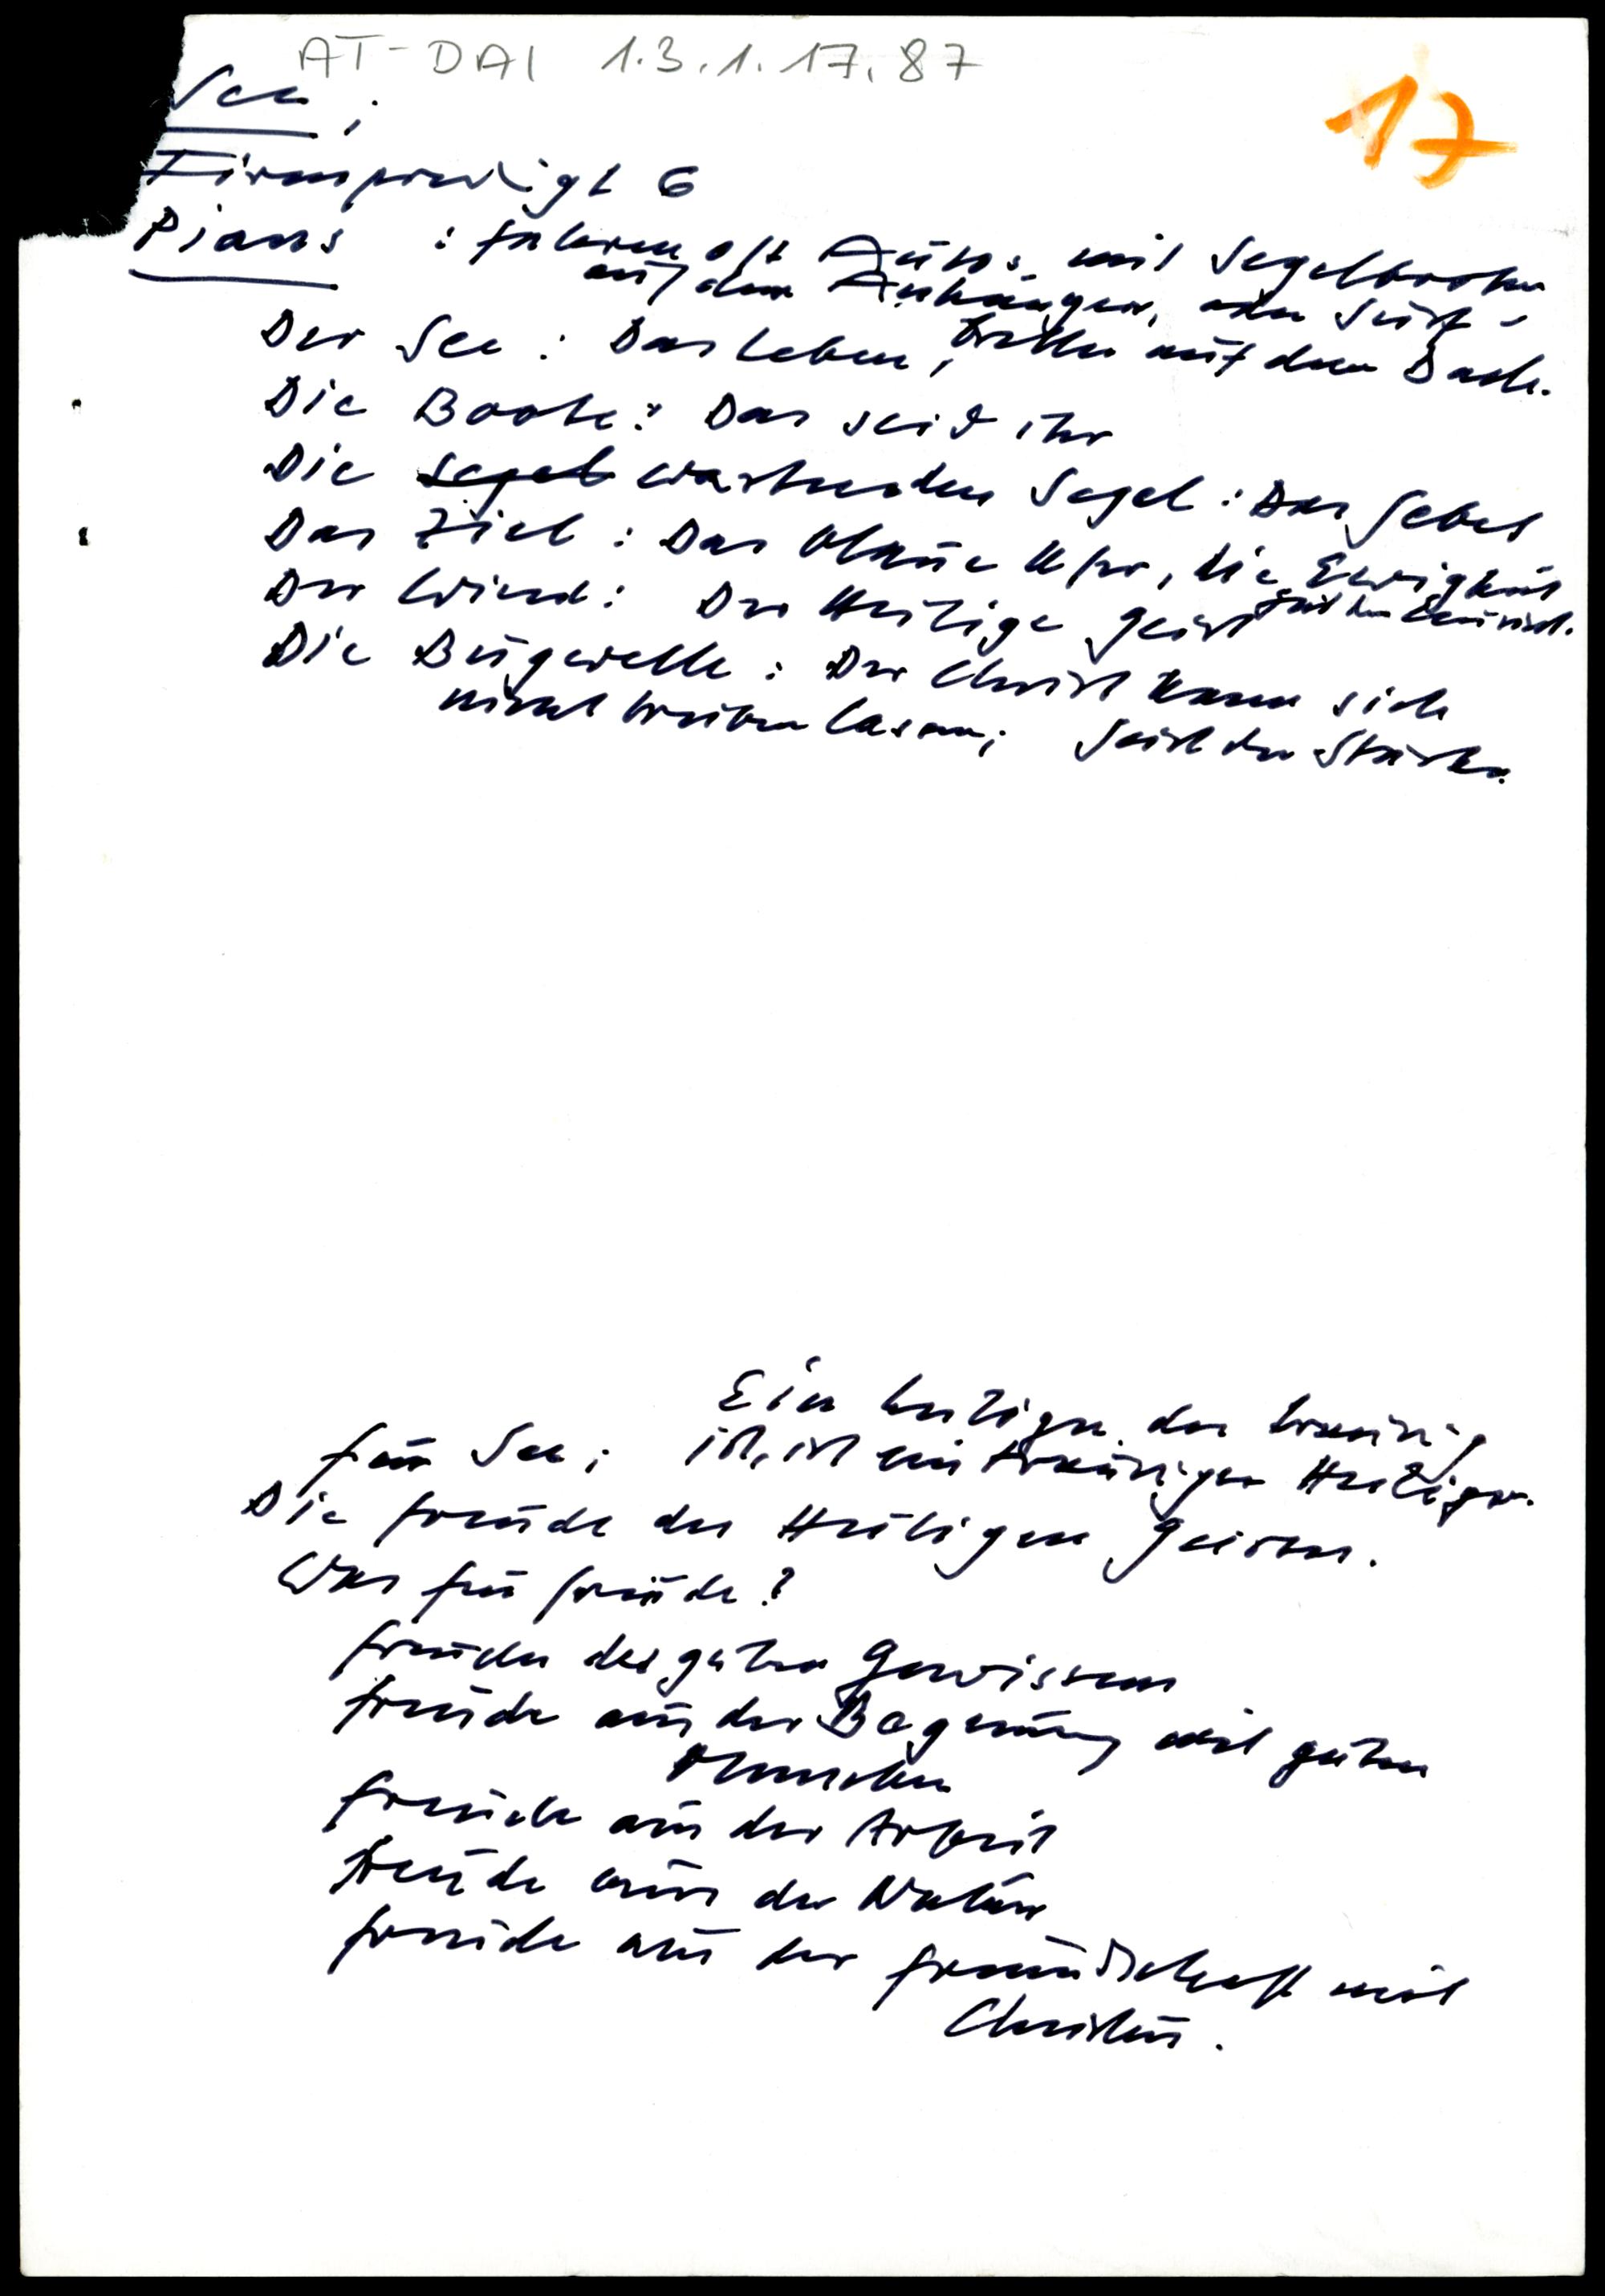 AT-DAI 1.3.1.17.87
17
See;
Firmpredigt 6
Pians : fahren oft Autos mit Segelbooten
auf dem Anhänger, oder Surf-
bretter auf dem Dach.
Der See : Das Leben,
Die Boote : Das seid ihr
Die Segel wartenden Segel : Das Gebet
Das Ziel : Das blaue Ufer, die Ewigkeit
Der Wind : Der Heilige Geist
Die Bugwelle : Der Christ kann sich
nicht treiben lassen; Geist der Stärke.
Ein heiliger, der traurig
für See; ist, ist ein trauriger Heiliger.
Die Freude des Heiligen Geistes.
Was für Freude?
Freude des guten Gewissens
Freude aus der Begegnung mit guten
Menschen
Freude aus der Arbeit
Freude aus der Natur
Freude aus der Freundschaft mit
Christus.